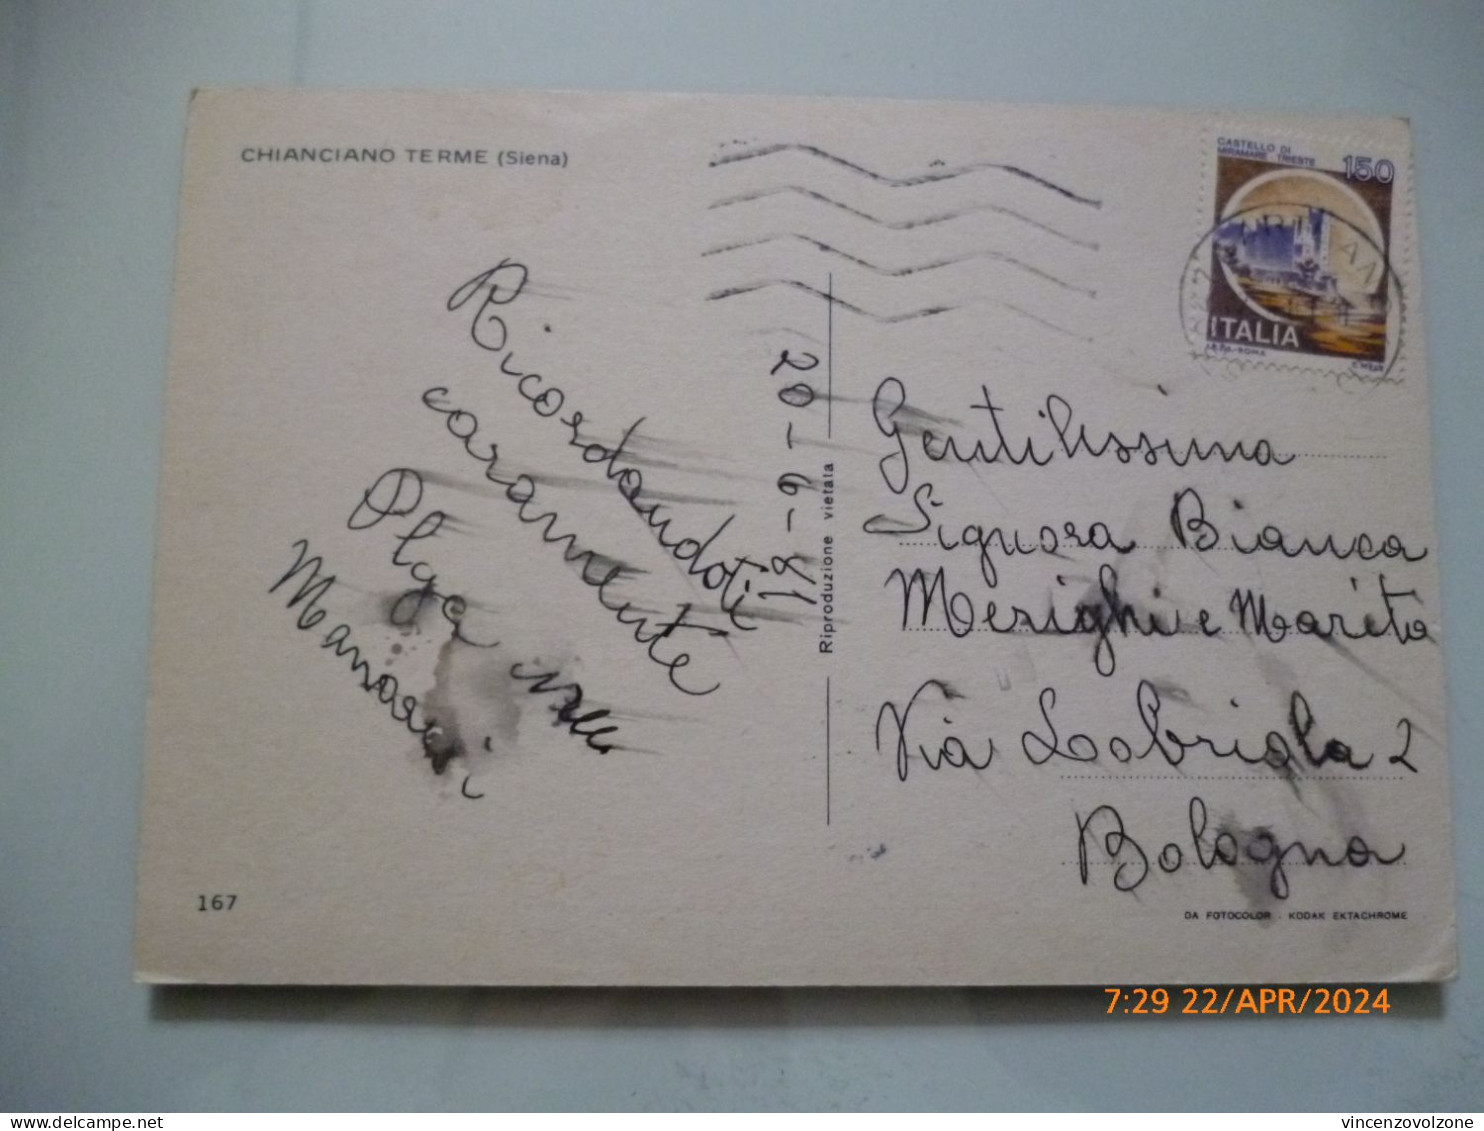 CHIANCIANO TERME (Siena)
Ricordandoti
caramente
Olga
20-6-81
Riproduzione vietata
CASTELLO DI
MIRAMARE TRIESTE
150
ITALIA
Gentilissima
Signora Bianca
Merighi e Marito
Via Labriola 2
Bologna
167
DA FOTOCOLOR - KODAK EKTACHROME
7:29 22/APR/2024
delcampe.net
vincenzovolzone